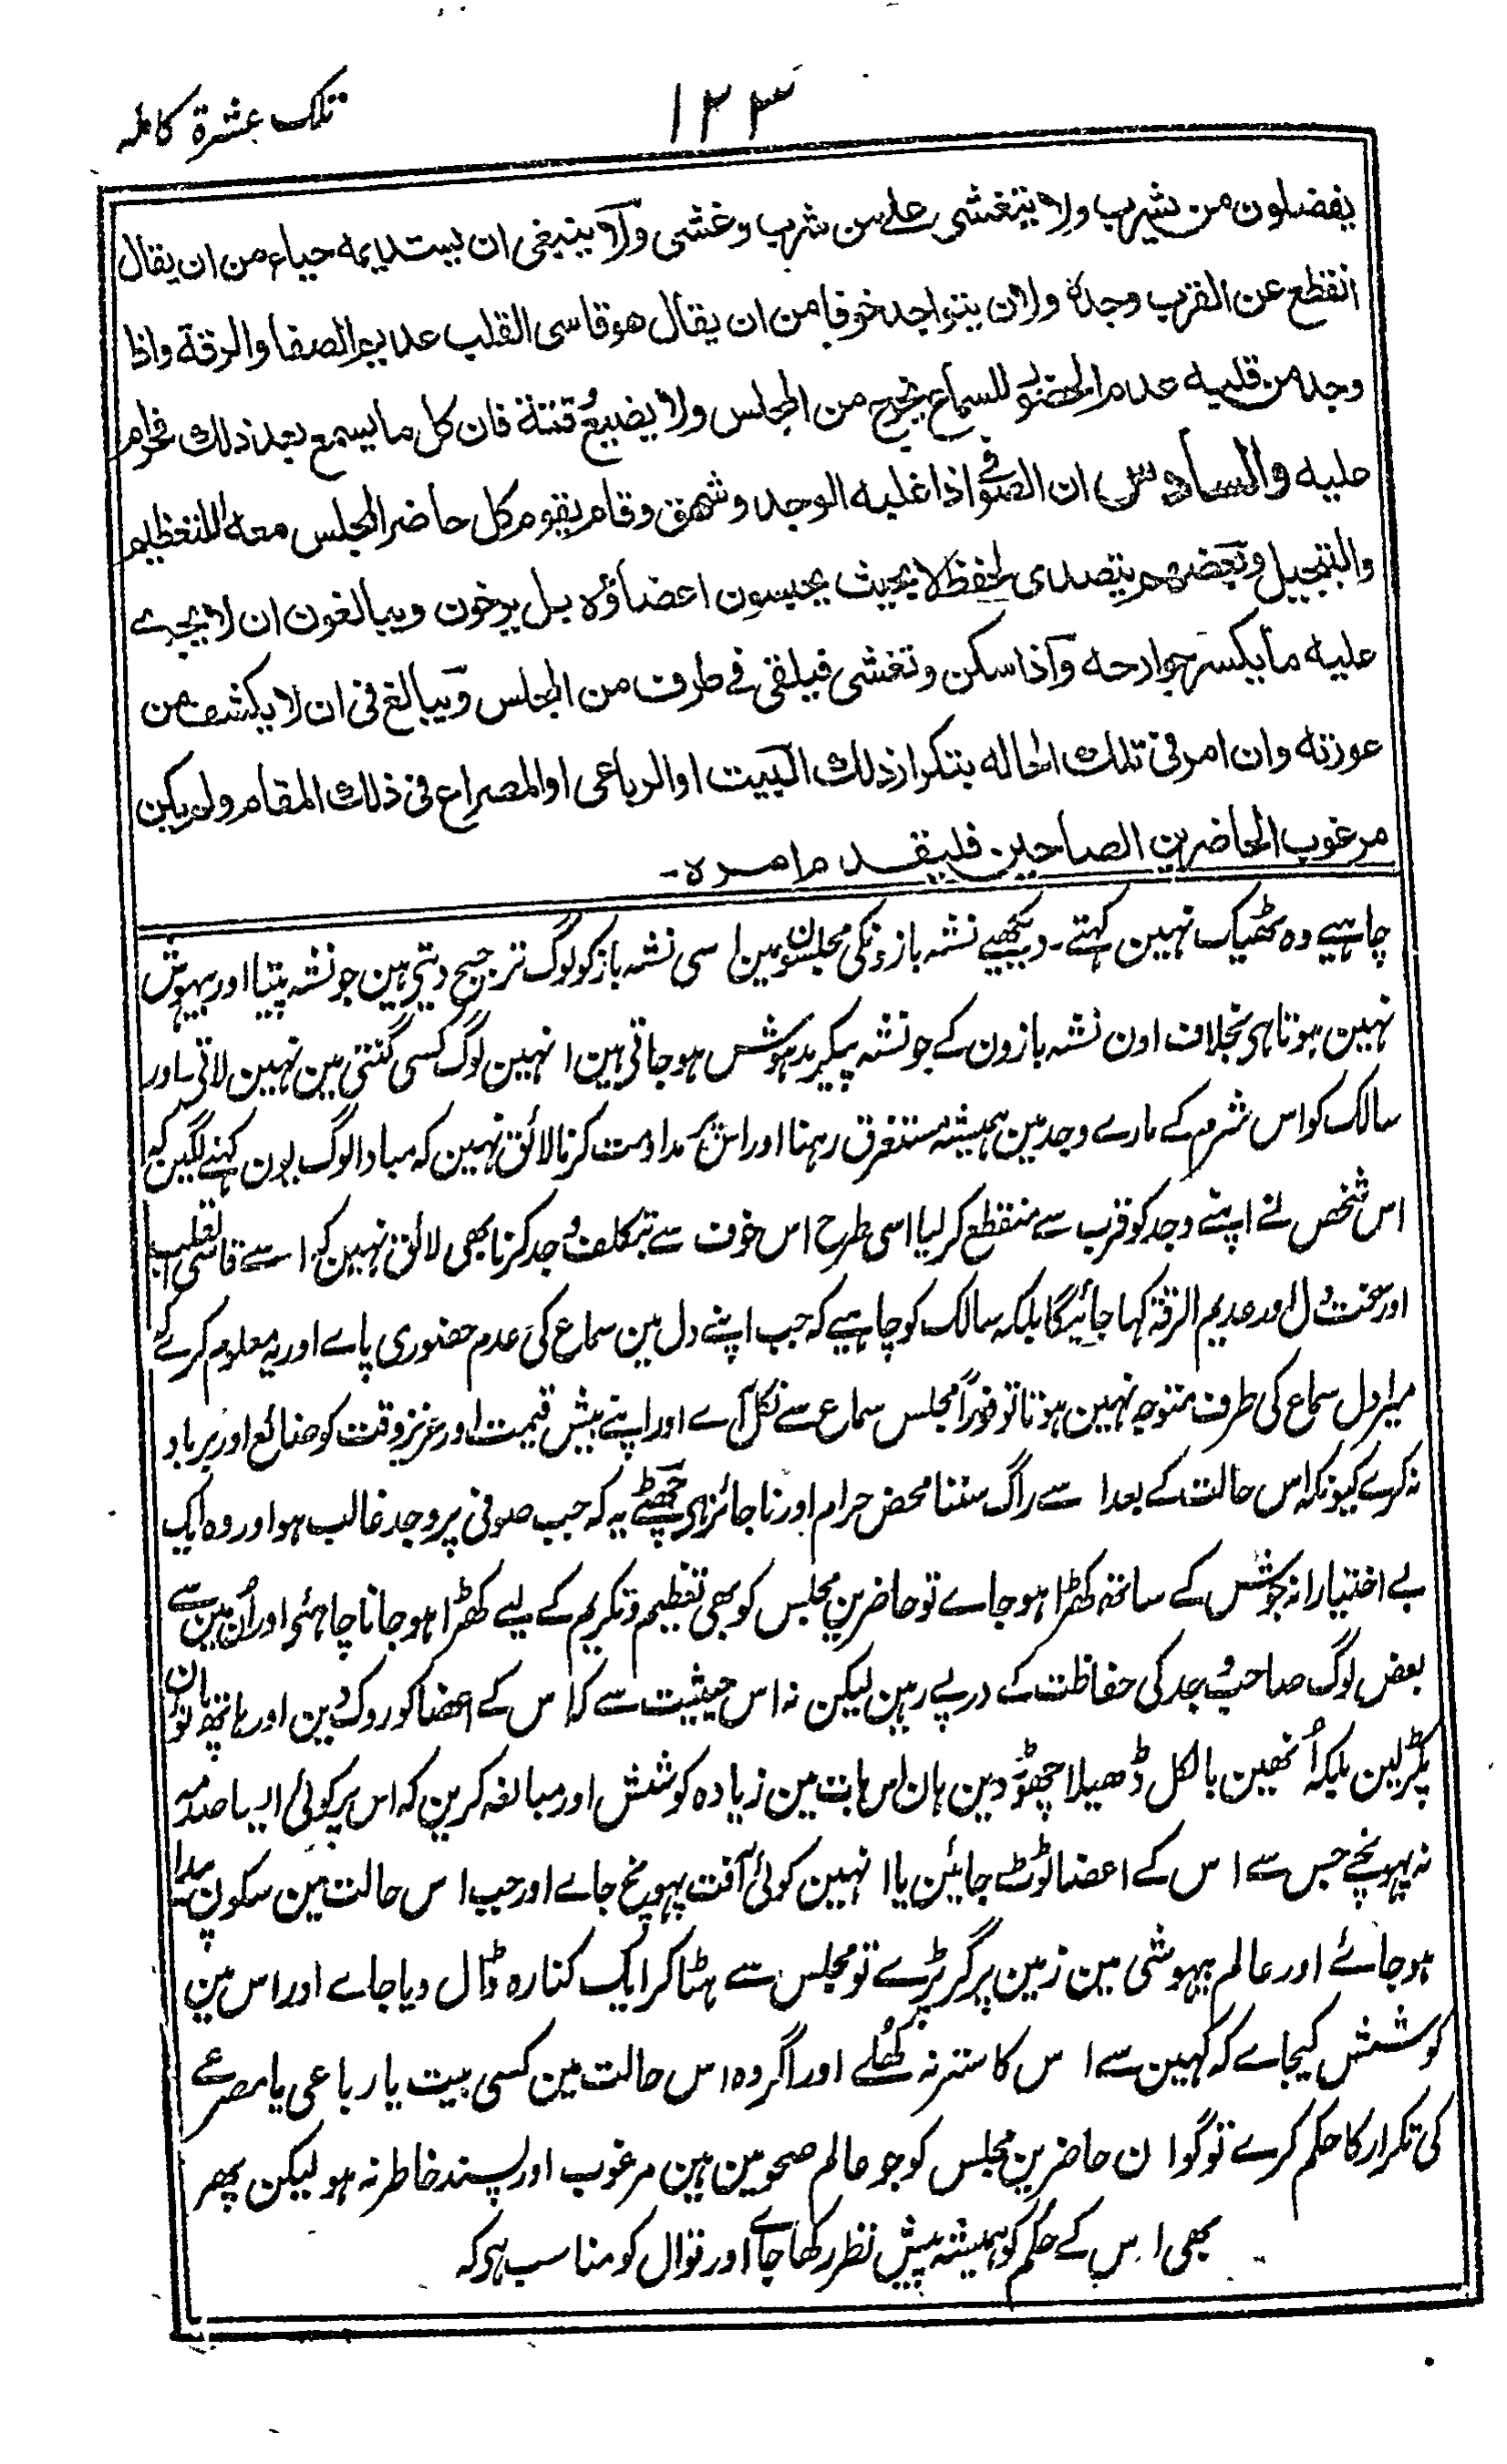 تلک عشرة کاملہ
۱۲۳
یفضلون من یشرب ولا یتغشی علے من شرب وغشی ولا ینبغی ان یستدیمہ حیاء من ان یقال
انقطع عن القرب وجدہ ولا ان یتواجد خوفا من ان یقال ھو قاسی القلب عدیم الصفا والرقة واذا
وجد من قلبہ عدم الحضور للسماع یخرج من المجلس ولا یضیع وقتہ فان کل ما یسمع بعد ذلك فحرام
علیہ والسادس ان الصوفی اذا غلبہ الوجد وشھق وقام یقوم کل حاضر المجلس معہ للتعظیم
والتبجیل وبعضھم یتصدی لحفظہ لا بحیث یحبسون اعضاؤہ بل یرخون ویبالغون ان لا یجرے
علیہ ما یکسر جوارحہ واذا سکن وتغشی فیلقی فے طرف من المجلس ویبالغ فی ان لا یکشف من
عورتہ وان امر فی تلك الحالہ بتکرار ذلك البیت او الرباعی او المصراع فی ذلك المقام ولم یکن
مرغوب الحاضرین الصاحین فلیقدم امرہ ۔
چاہیے وہ ٹھیک نہین کہتے ۔ دیکھیے نشہ بازونکی مجلسون مین اسی نشہ باز کو لوگ ترجیح دیتی ہین جو نشہ پیتا اور بیہوش
نہین ہوتا ہی بخلاف اون نشہ بازون کے جو نشہ پیکر مدہوش ہو جاتی ہین انہین لوگ کسی گنتی مین نہین لاتی اور
سالک کو اس شرم کے مارے وجد مین ہمیشہ مستغرق رہنا اور اس پر مداومت کرنا لائق نہین کہ مبادا لوگ یون کہنے لگین کہ
اس شخص نے اپنے وجد کو قرب سے منقطع کر لیا اسی طرح اس خوف سے بتکلف وجد کرنا بھی لائق نہین کہ اسے قاسی القلب
اور سخت دل اور عدیم الرقة کہا جائیگا بلکہ سالک کو چاہیے کہ جب اپنے دل مین سماع کی عدم حضوری پاے اور یہ معلوم کرے کہ
میرا دل سماع کی طرف متوجہ نہین ہوتا تو فوراً مجلس سماع سے نکل آے اور اپنے بیش قیمت اور عزیز وقت کو ضائع اور برباد
نہ کرے کیونکہ اس حالت کے بعد اسے راگ سننا محض حرام اور ناجائز ہی چھٹے یہ کہ جب صوفی پر وجد غالب ہو اور وہ ایک
بے اختیارانہ جوش کے ساتھ کھڑا ہو جاے تو حاضرین مجلس کو بھی تعظیم و تکریم کے لیے کھڑا ہو جانا چاہئی اور اُن مین سے
بعض لوگ صاحب وجد کی حفاظت کے درپے رہین لیکن نہ اس حیثیت سے کہ اس کے اعضا کو روک دین اور ہاتھ پانون
پکڑ لین بلکہ اُنھین بالکل ڈھیلا چھوڑ دین ہان اس بات مین زیادہ کوشش اور مبالغہ کرین کہ اس پر کوئی ایسا صدمہ
نہ پہونچے جس سے اس کے اعضا ٹوٹ جائین یا انہین کوئی آفت پہونچ جاے اور جب اس حالت مین سکون پیدا
ہو جائے اور عالم بیہوشی مین زمین پر گر پڑے تو مجلس سے ہٹا کر ایک کنارہ ڈال دیا جاے اور اس مین
کوشش کیجاے کہ کہین سے اس کا ستر نہ کھُلے اور اگر وہ اس حالت مین کسی بیت یا رباعی یا مصرعے
کی تکرار کا حکم کرے تو گو ان حاضرین مجلس کو جو عالم صحو مین ہین مرغوب اور پسند خاطر نہ ہو لیکن پھر
بھی اس کے حکم کو ہمیشہ پیش نظر رکھا جاے اور قوال کو مناسب ہی کہ